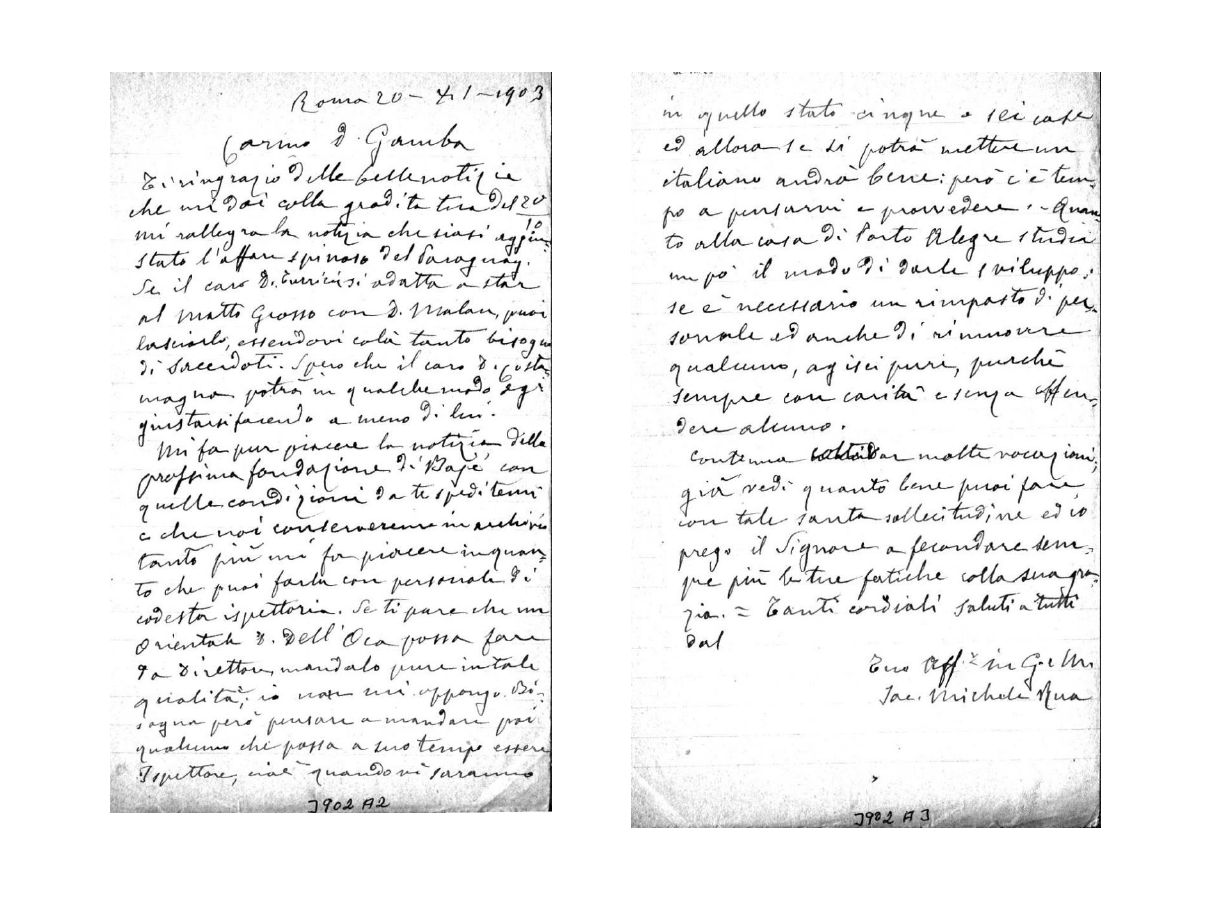 Roma 20 - XI - 1903
Carmo D. Gamba
Ti ringrazio delle belle notizie
che mi dai colla gradita tua del 20/10
mi rallegra la notizia che siasi aggiu-
stato l'affare spinoso del Paraguay.
Se il caro D. Turriccia si adatta a star
al Matto Grosso con D. Malan, puoi
lasciarlo, essendovi colà tanto bisogno
di Sacerdoti. Spero che il caro D. Costa-
magna potrà in qualche modo egli
giustarsi facendo a meno di lui.
Mi fa pur piacere la notizia della
prossima fondazione di Bagé con
quelle condizioni da te speditemi
e che noi conserveremo in archivio
tanto più mi fa piacere in quan-
to che puoi farla con personale di
codesta ispettoria. Se ti pare che un
Orientale D. Dell'Oca possa fare
da Direttore, mandalo pure in tale
qualità; io non mi oppongo. Bi-
sogna però pensare a mandare poi
qualcuno che possa a suo tempo essere
Ispettore, cioè quando vi saranno
J902 A2
in quello stato cinque o sei case
ed allora se si potrà mettere un
italiano andrà bene: però c'è tem-
po a pensarvi e provvedere. - Quan-
to alla casa di Porto Alegre studia
un pò il modo di darle sviluppo;
se è necessario un rimpasto di per-
sonale ed anche di rimuovere
qualcuno, agisci pure, purchè
sempre con carità e senza offen-
dere alcuno.
Continua a coltivar molte vocazioni;
già vedi quanto bene puoi fare
con tale santa sollecitudine ed io
prego il Signore a fecondare sem-
pre più le tue fatiche colla sua gra-
zia. = Tanti cordiali saluti a tutti
dal
Tuo Aff.º in G. e M.
Sac. Michele Rua
J902 A3